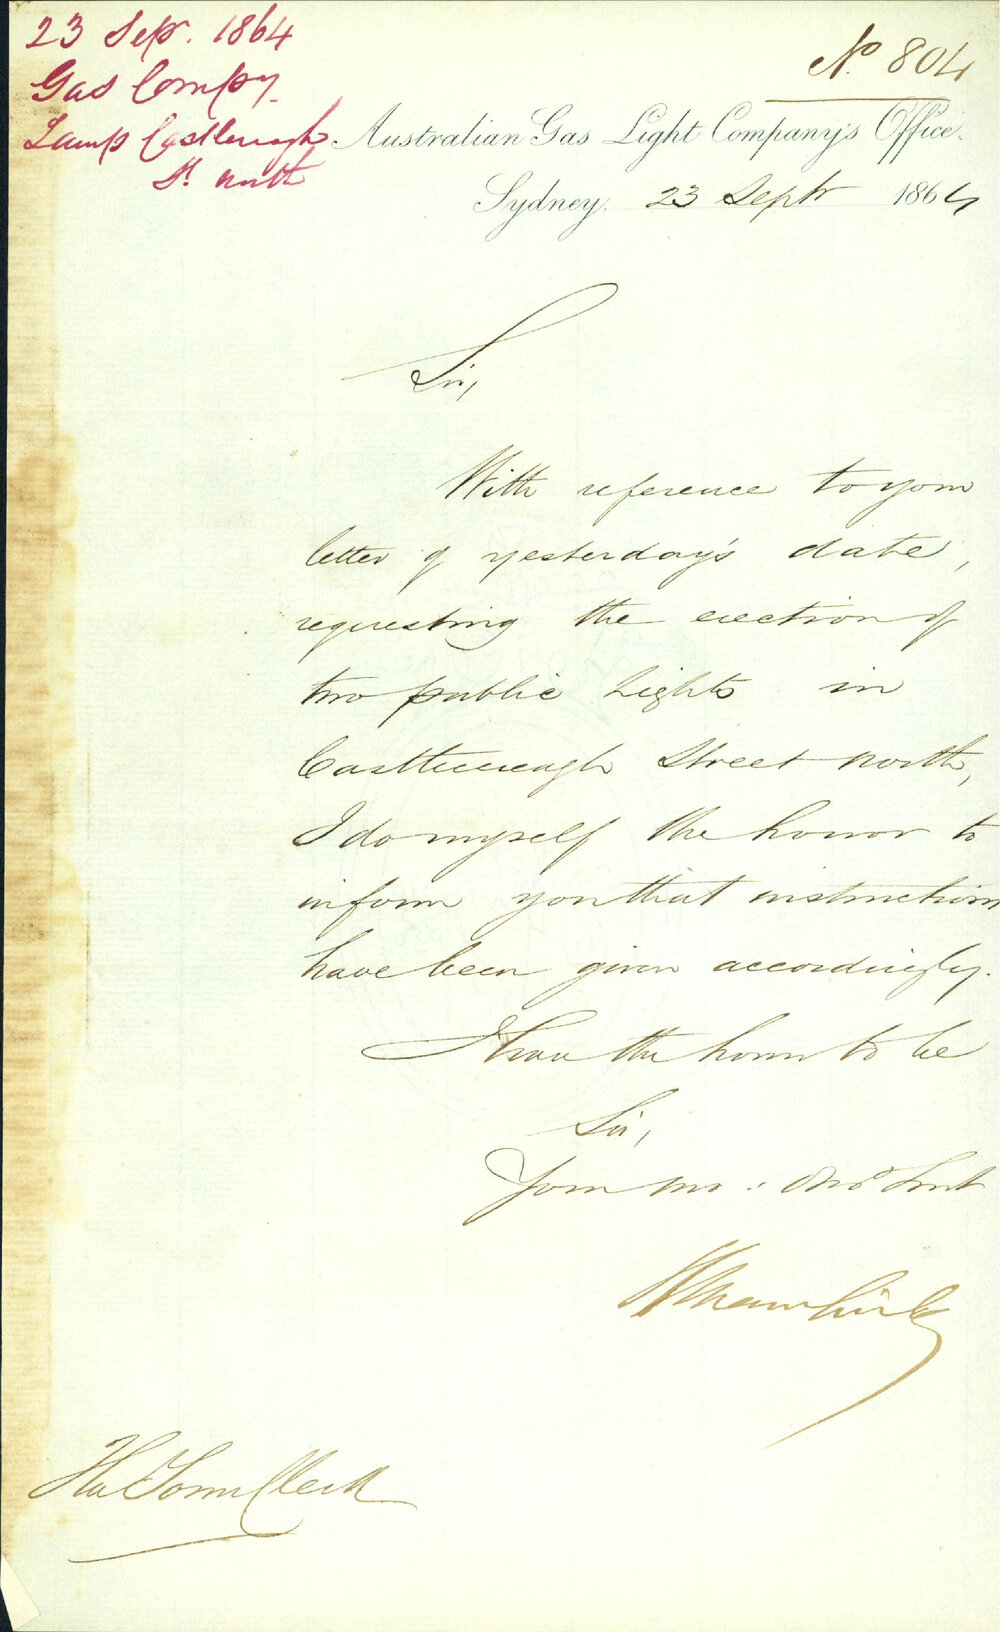 23 Sepr. 1864
Gas Compy.
Lamp Castlereagh
St. North
No. 804
Australian Gas Light Company's Office.
Sydney. 23 Septr 1864
Sir,
With reference to your
letter of yesterday's date,
requesting the erection of
two public Lights in
Castlereagh Street North,
I do myself the honor to
inform you that instructions
have been given accordingly.
I have the honor to be
Sir,
Your mo: Obdt Servt
The Town Clerk